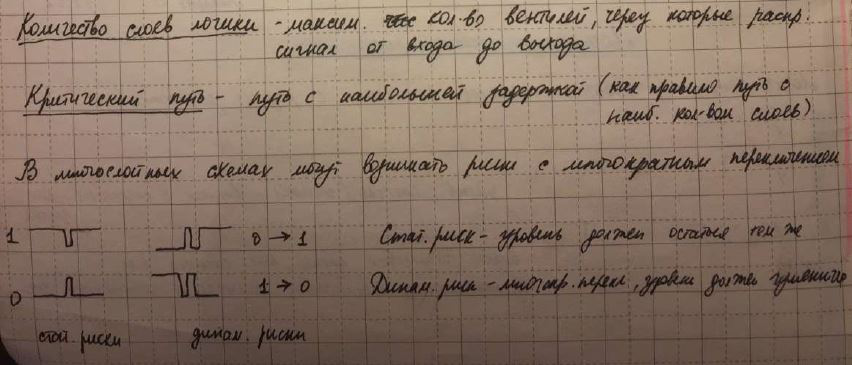 Количество слоев логики - максим. кол-во вентилей, через которые распр.
сигнал от входа до выхода
Критический путь - путь с наибольшей задержкой (как правило путь с
наиб. кол-вом слоев)
В многослойных схемах могут возникать риски с многократным переключением
1 0 → 1 Стат. риск - уровень должен остаться тем же
0 1 → 0 Динам. риск - многокр. перекл., уровень должен
стат. риски динам. риски